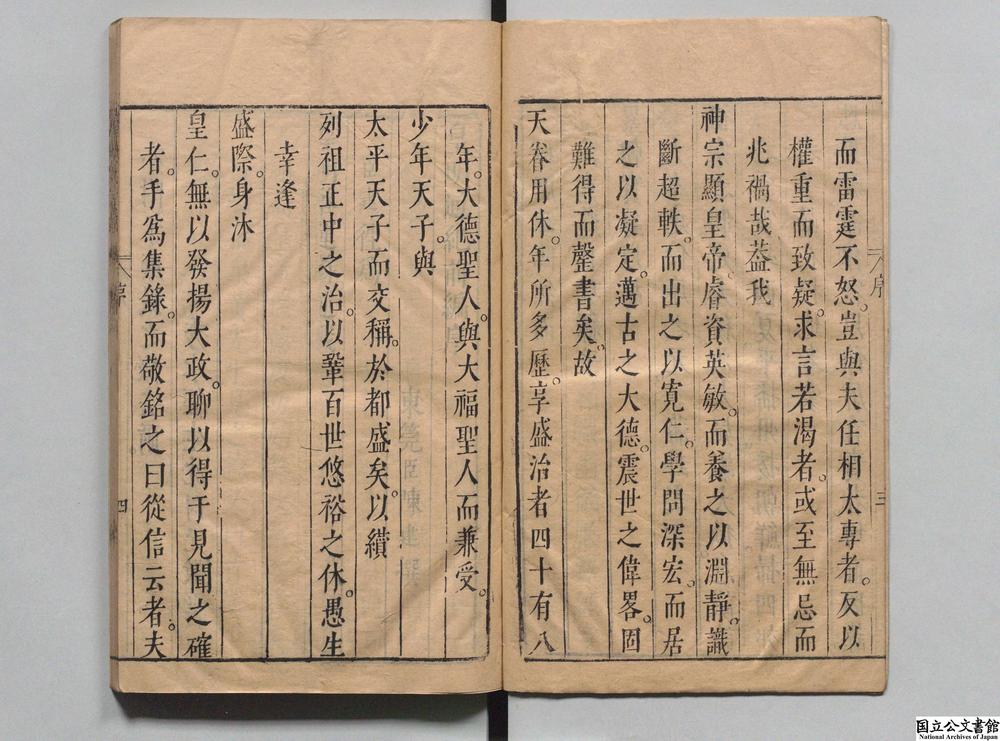 而雷霆不怒。豈與夫任相太專者。反以
權重而致疑。求言若渴者。或至無忌而
兆禍哉葢我
神宗顯皇帝。睿資英敏。而養之以淵靜。識
斷超軼。而出之以寬仁。學問深宏。而居
之以凝定。邁古之大德。震世之偉畧。固
難得而罄書矣。故
天眷用休。年所多歷。享盛治者四十有八
年。大德聖人。與大福聖人而兼受。
少年天子。與
太平天子而交稱。於都盛矣。以纘
列祖正中之治。以鞏百世悠裕之休。愚生
幸逢
盛際。身沐
皇仁。無以發揚大政。聊以得于見聞之確
者。手爲集錄。而敬銘之曰從信云者。夫
序
三
序
四
国立公文書館
National Archives of Japan